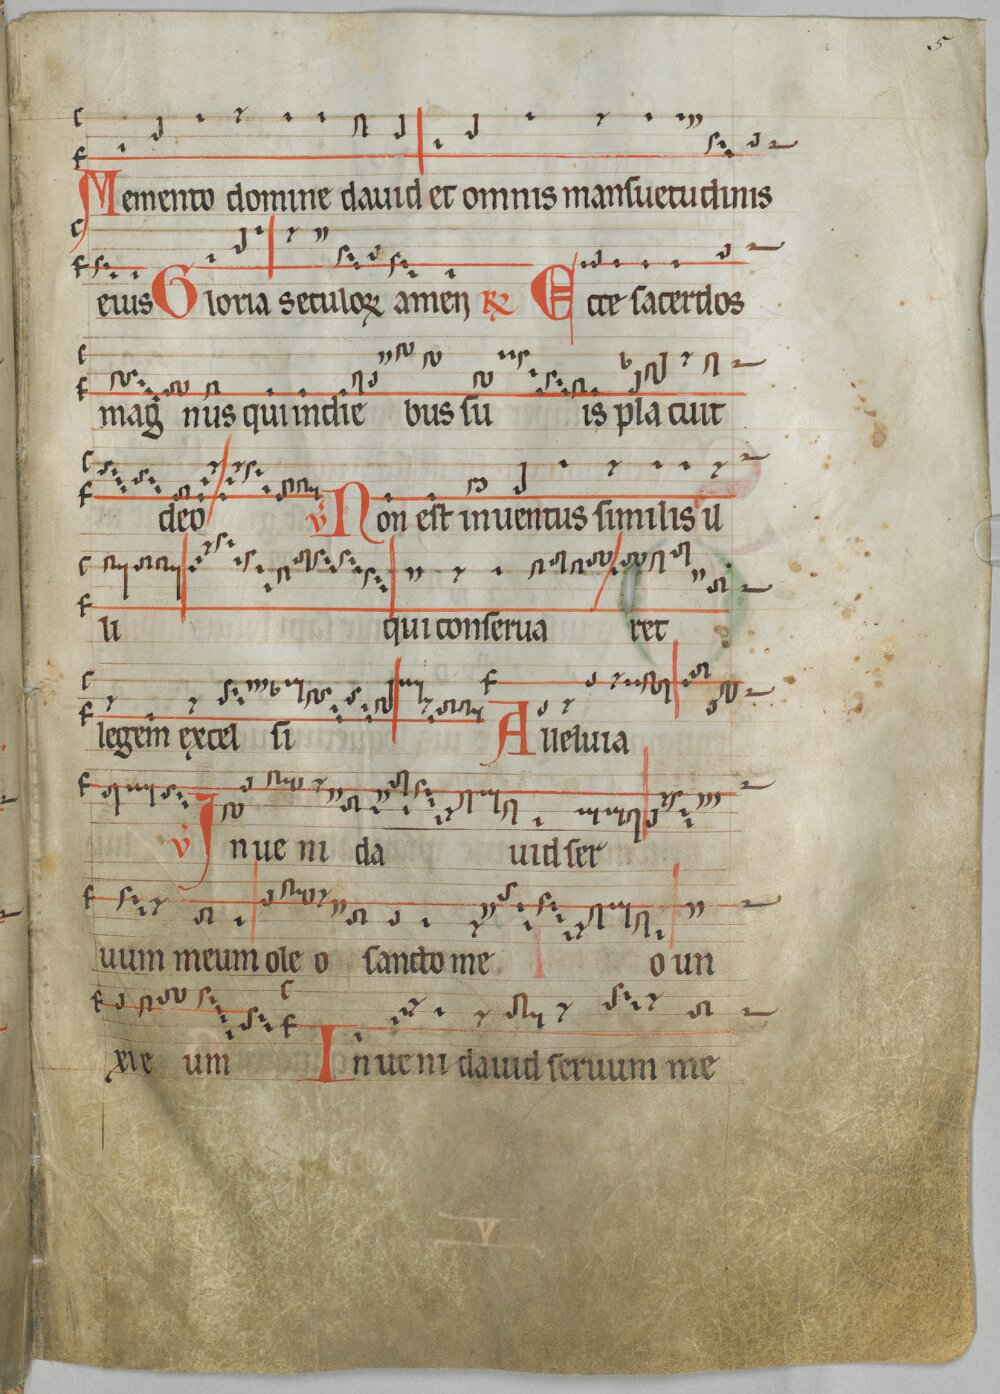 5
Memento domine dauid et omnis manſuetudinis
eius Gloria seculoꝝ amen ꝶ Ecce ſacerdos
mag nus qui in die bus ſu is pla cuit
deo v̇ Non eſt inuentus ſimilis il
li qui conſerua ret
legem excel ſi Alleluia
v̇ Inue ni da uid ſer
uum meum ole o ſancto me o un
xi e um Inueni dauid ſeruum me
V